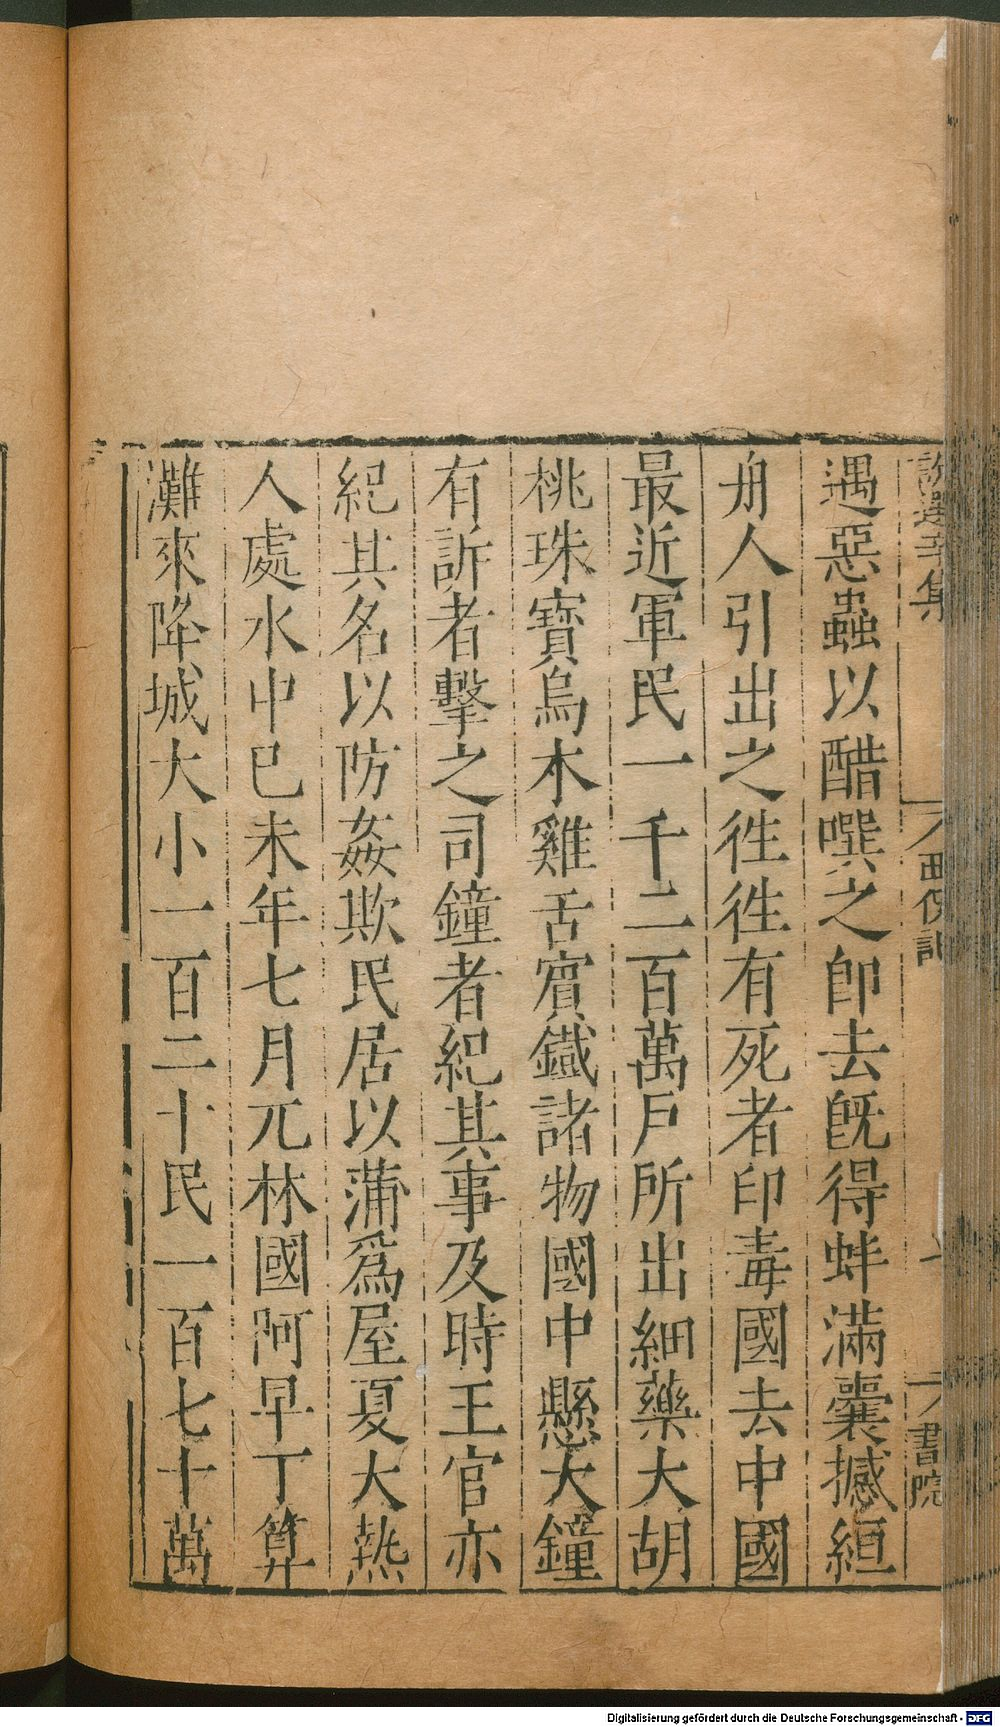 說選辛集
西使記
書院
遇惡蟲以醋噀之卽去旣得蚌滿囊撼絙
舟人引出之徃徃有死者印毒國去中國
最近軍民一千二百萬戶所出細藥大胡
桃珠寶烏木雞舌賔鐵諸物國中懸大鐘
有訴者擊之司鐘者紀其事及時王官亦
紀其名以防姦欺民居以蒲爲屋夏大熱
人處水中巳未年七月兀林國阿早丁算
灘來降城大小一百二十民一百七十萬
Digitalisierung gefördert durch die Deutsche Forschungsgemeinschaft - DFG